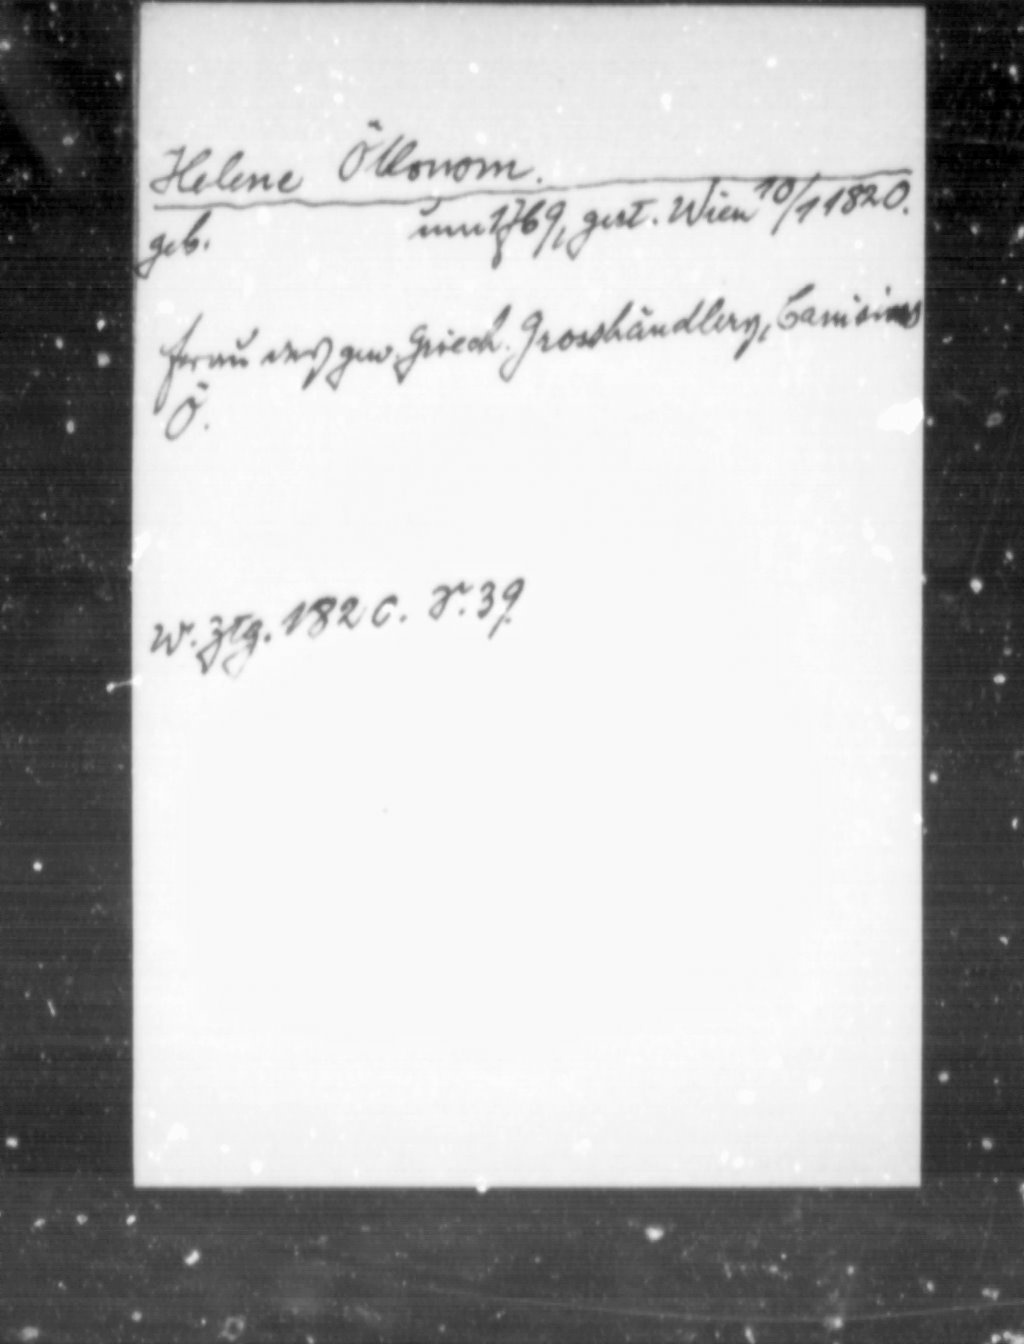 Helene Ökonom.
geb. um 1769, gest. Wien 10/1 1820.
Frau des gew. griech. Grosshändlers,
Ö.
W. Ztg. 1820. S. 39